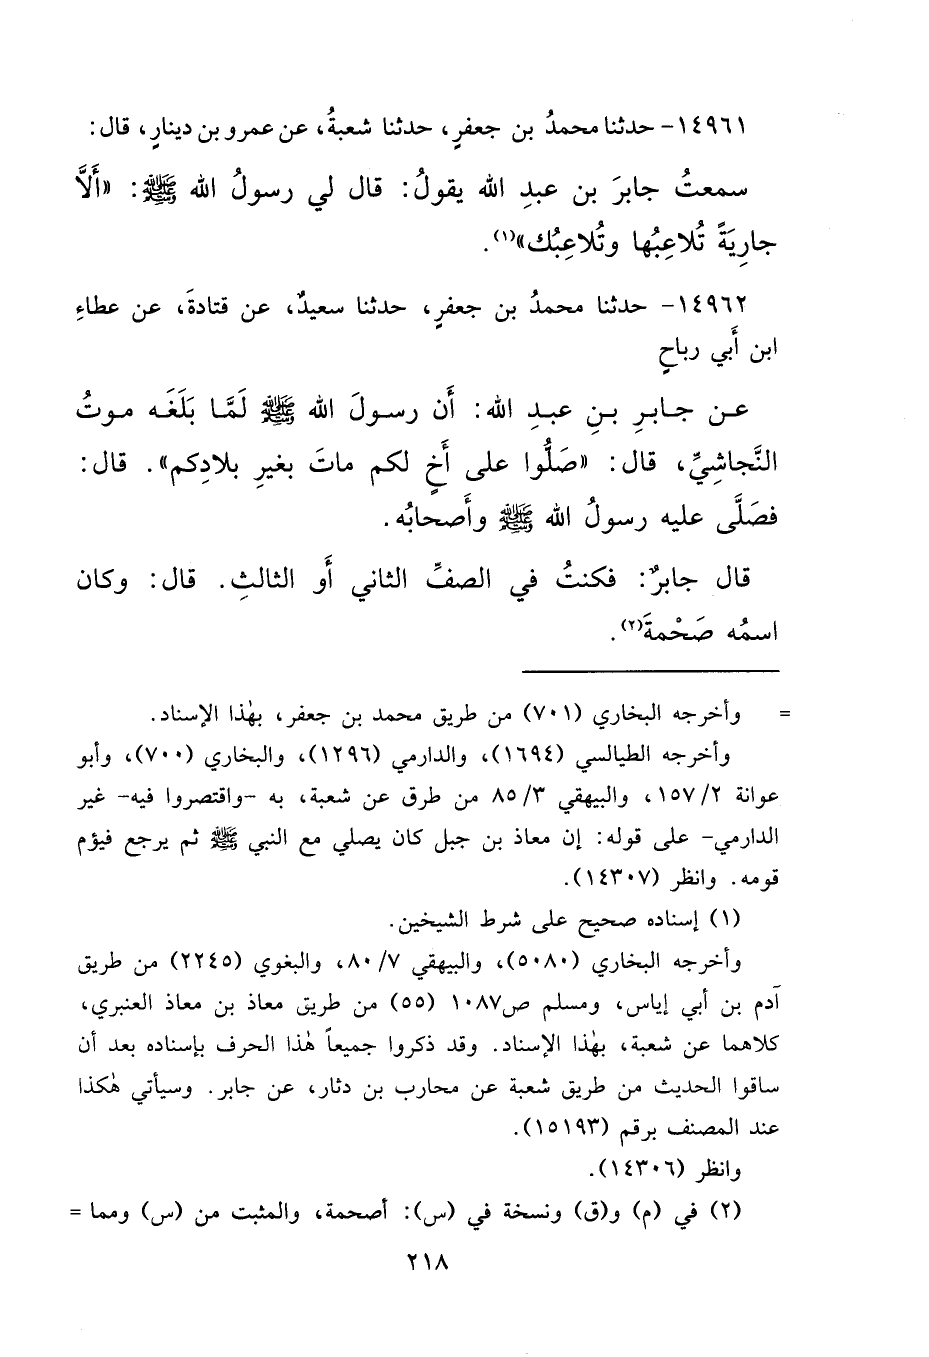 ١٤٩٦١- حدثنا محمدُ بن جعفرٍ، حدثنا شعبةُ، عن عمرو بن دينارٍ، قال:
سمعتُ جابرَ بن عبدِ الله يقولُ: قال لي رسولُ الله ﷺ: «أَلَّا
جارِيَةً تُلاعِبُها وتُلاعِبُك»(١).
١٤٩٦٢- حدثنا محمدُ بن جعفرٍ، حدثنا سعيدٌ، عن قتادةَ، عن عطاءِ
ابن أَبي رباحٍ
عـن جـابـرِ بـنِ عبـدِ الله: أَن رسـولَ الله ﷺ لَمَّـا بَلَغَـه مـوتُ
النَّجاشِيِّ، قال: «صَلُّوا على أَخٍ لكم ماتَ بغيرِ بلادِكم». قال:
فصَلَّى عليه رسولُ الله ﷺ وأَصحابُه.
قال جابرٌ: فكنتُ في الصفِّ الثاني أَو الثالثِ. قال: وكان
اسمُه صَحْمةَ(٢).
= وأخرجه البخاري (٧٠١) من طريق محمد بن جعفر، بهٰذا الإسناد.
وأخرجه الطيالسي (١٦٩٤)، والدارمي (١٢٩٦)، والبخاري (٧٠٠)، وأبو
عوانة ١٥٧/٢، والبيهقي ٨٥/٣ من طرق عن شعبة، به -واقتصروا فيه- غير
الدارمي- على قوله: إن معاذ بن جبل كان يصلي مع النبي ﷺ ثم يرجع فيؤم
قومه. وانظر (١٤٣٠٧).
(١) إسناده صحيح على شرط الشيخين.
وأخرجه البخاري (٥٠٨٠)، والبيهقي ٨٠/٧، والبغوي (٢٢٤٥) من طريق
آدم بن أبي إياس، ومسلم ص١٠٨٧ (٥٥) من طريق معاذ بن معاذ العنبري،
كلاهما عن شعبة، بهٰذا الإسناد. وقد ذكروا جميعاً هٰذا الحرف بإسناده بعد أن
ساقوا الحديث من طريق شعبة عن محارب بن دثار، عن جابر. وسيأتي هٰكذا
عند المصنف برقم (١٥١٩٣).
وانظر (١٤٣٠٦).
(٢) في (م) و(ق) ونسخة في (س): أصحمة، والمثبت من (س) ومما =
٢١٨